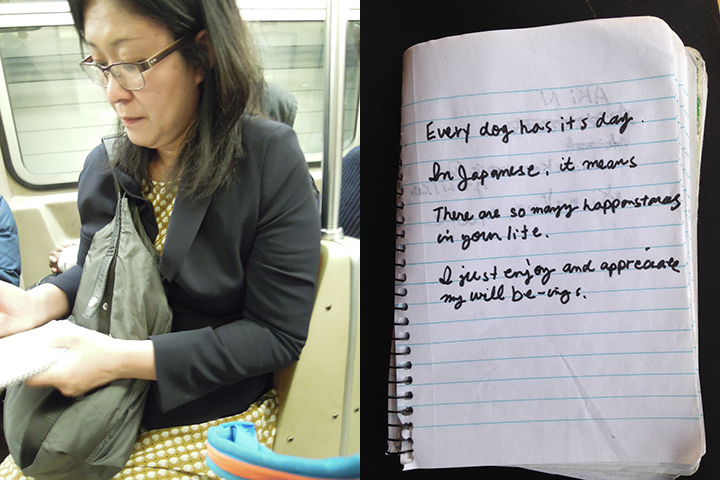 Every dog has its day.
In Japanese, it means
There are so many happenstances
in your life.
I just enjoy and appreciate
my will be-ings.